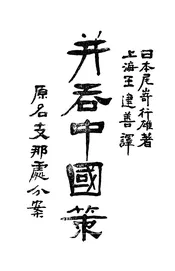 日本尾崎行雄著
上海王建善譯
并吞中國策
原名支那處分案